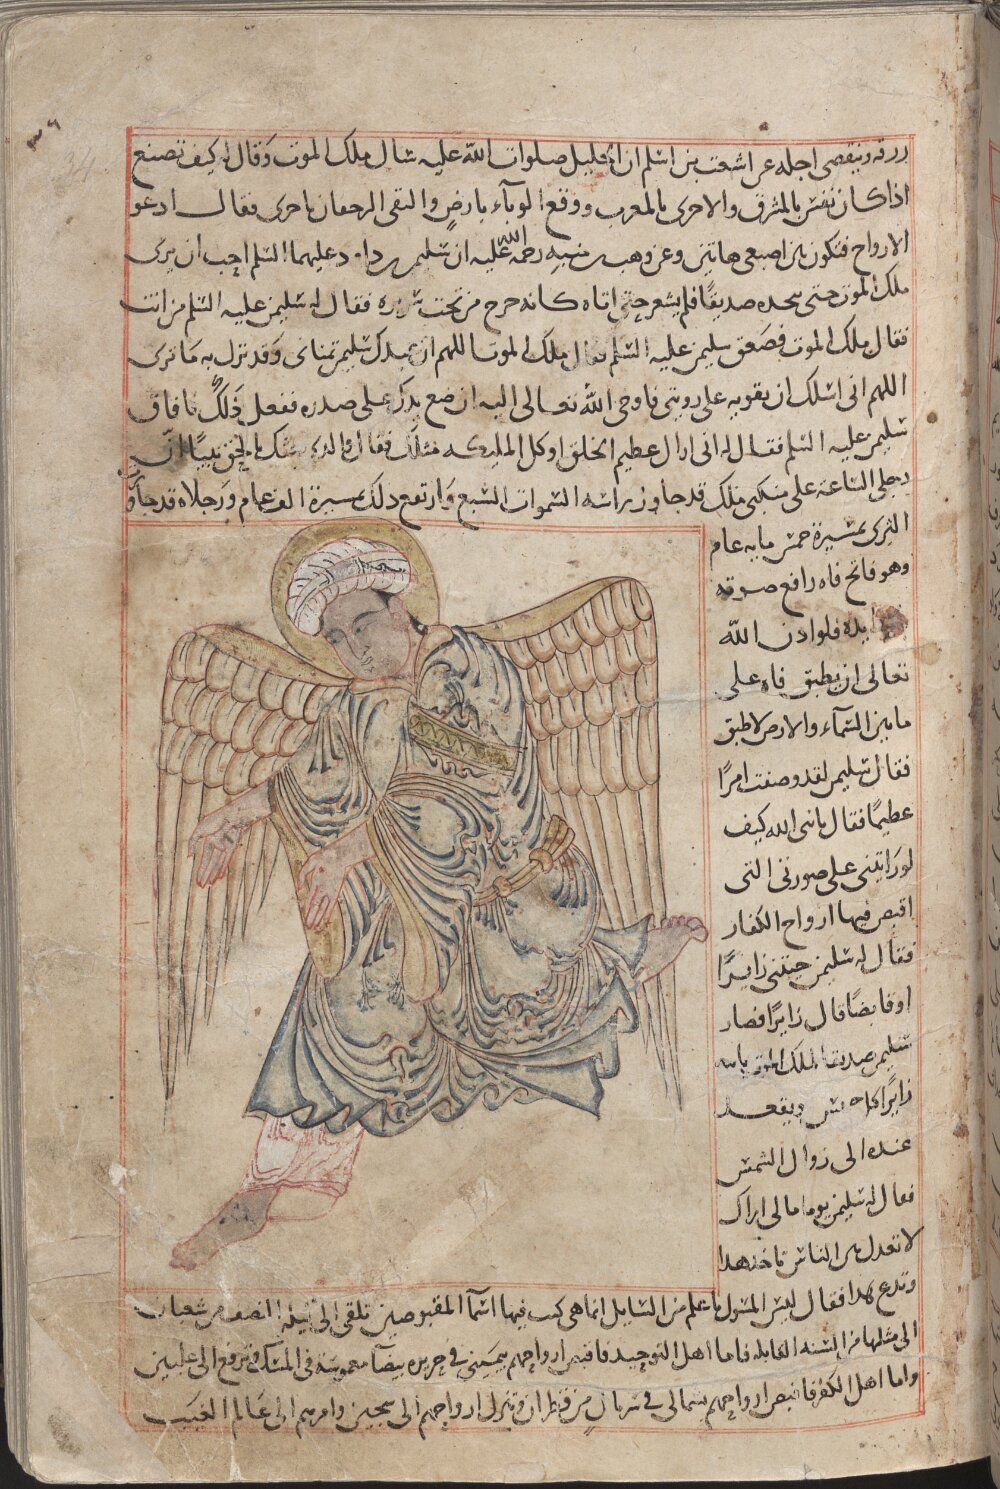 ٣٦
34
ويقضى اجله عن اشعث بن اسلم ان الخليل صلوات الله عليه سال ملك الموت وقال له كيف تصنع
اذا كان نفس بالمشرق والاخرى بالمغرب ووقع الوباء بارض والتقى الزحفان باخرى فقال ادعو
الارواح فتكون بين اصبعى هاتين وعن وهب بن منبه رحمة الله عليه ان سليمن بن داود عليهما السلم احب ان يرى
ملك الموت حتى يتخذه صديقًا فلم يشعر حتى اتاه كانه خرج من تحت سريره فقال له سليمن عليه السلم من انت
فقال ملك الموت فصعق سليمن عليه السلم فقال ملك الموت اللهم ان عبدك سليمن تمنانى وقد نزل به ما ترى
اللهم انى اسئلك ان تقويه على رويتى فاوحى الله تعالى اليه ان ضع يدك على صدره ففعل ذلك فافاق
سليمن عليه السلم فقال له انى اراك عظيم الخلق اوكل المليكه مثلك فقال والذى بعثك بالحق نبيًا انّ
رجلى الساعة على منكبى ملك قد جاوز راسه السموات السبع وارتفع ذلك مسيرة الف عام ورجلاه قد جاوزت
الثرى بمسيرة خمس مايه عام
وهو فاتح فاه رافع صوته
يده فلو اذن الله
تعالى ان يطبق فاه على
ما بين السماء والارض لاطبق
فقال سليمن لقد وصفت امرًا
عظيمًا فقال يا نبى الله كيف
لو رايتنى على صورتى التى
اقبض فيها ارواح الكفار
فقال له سليمن جيتنى زايرًا
او قابضًا قال زايرًا فصار
سليمن صديقا لملك الموت ياتيه
زايرًا كل خميس ويقعد
عنده الى زوال الشمس
فقال له سليمن يوما ما لى اراك
لا تعدل بين الناس تاخذ هذا
وتدع هذا فقال ليس المسئول باعلم من السايل انما هى كتب فيها اسما المقبوضين تلقى الى ليلة النصف من شعبان
الى مثلها من السنه القابله فاما اهل التوحيد فاقبض ارواحهم بيمينى فى حريره بيضآ مغموسة فى المسك وترفع الى عليين
واما اهل الكفر فاقبض ارواحهم بشمالى فى سربال من قطران وتنزل ارواحهم الى سجين وامرهم الى عالم الغيب